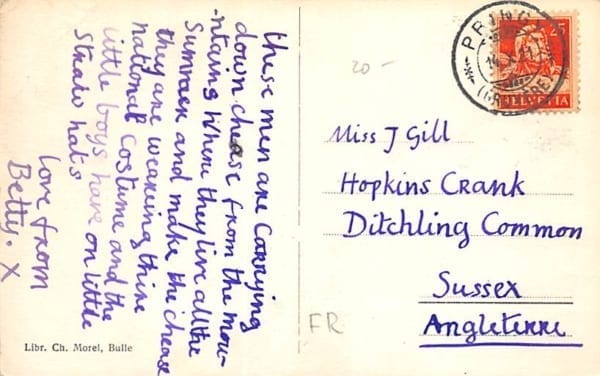 these men are carrying
down chease from the mou-
-ntains where they live all the
Summer and make the chease
they are wearing thire
national costume and the
little boys have on little
Straw hats
love from
Betty. X
Libr. Ch. Morel, Bulle
20 -
PRINGY
25
HELVETIA
Miss J Gill
Hopkins Crank
Ditchling Common
Sussex
Angleterre
FR